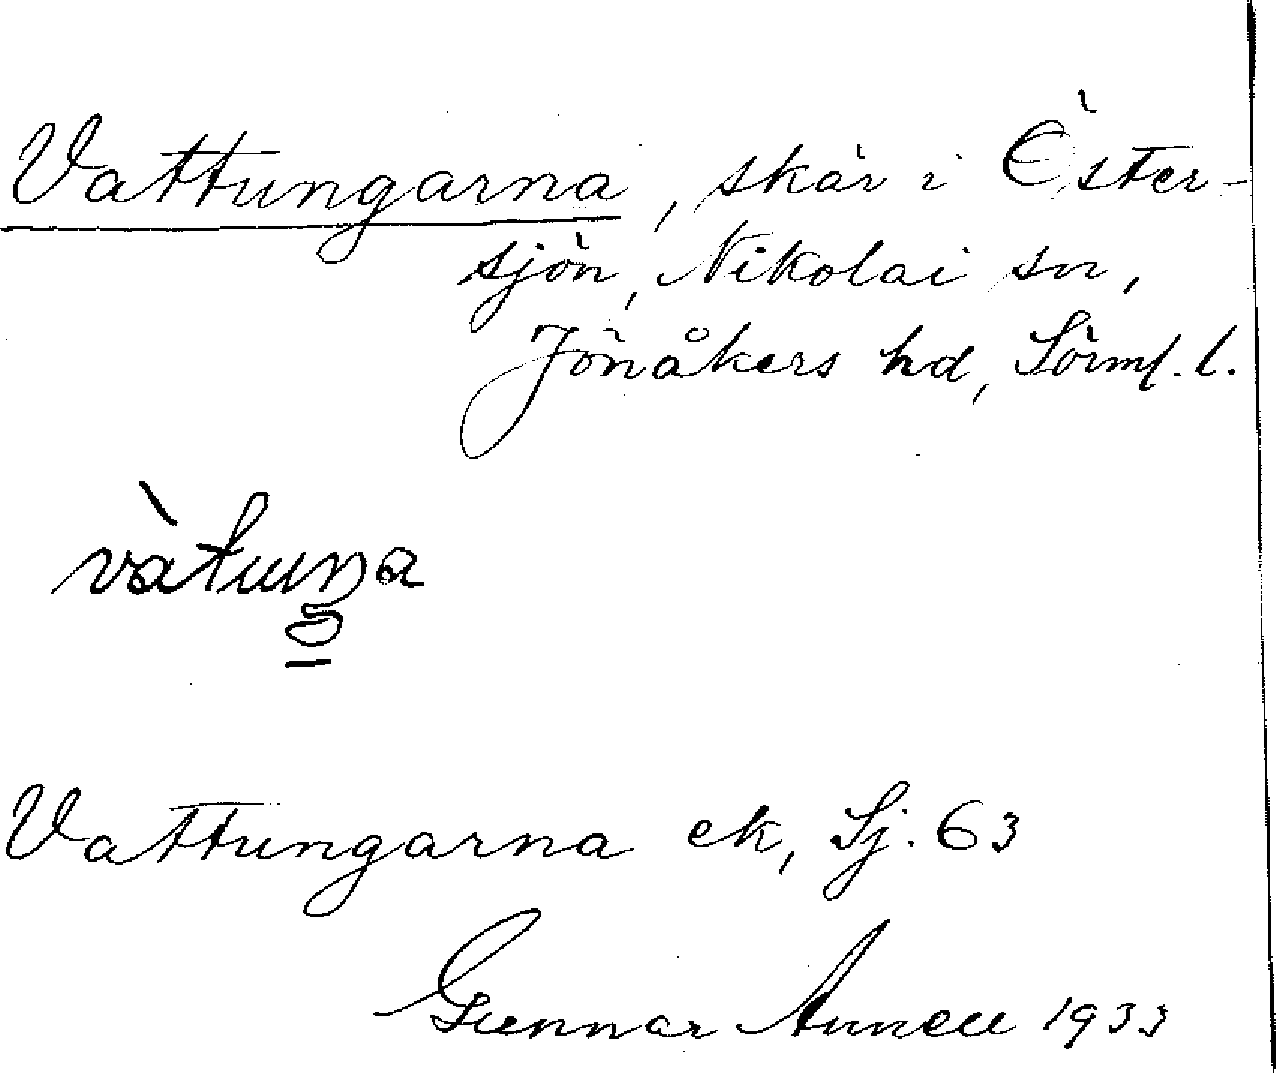 Vattungarna, skär i Öster-
sjön, Nikolai sn,
Jönåkers hd, Sörml. l.
Vattungarna ek, Sj. 63
Gunnar Aunell 1933